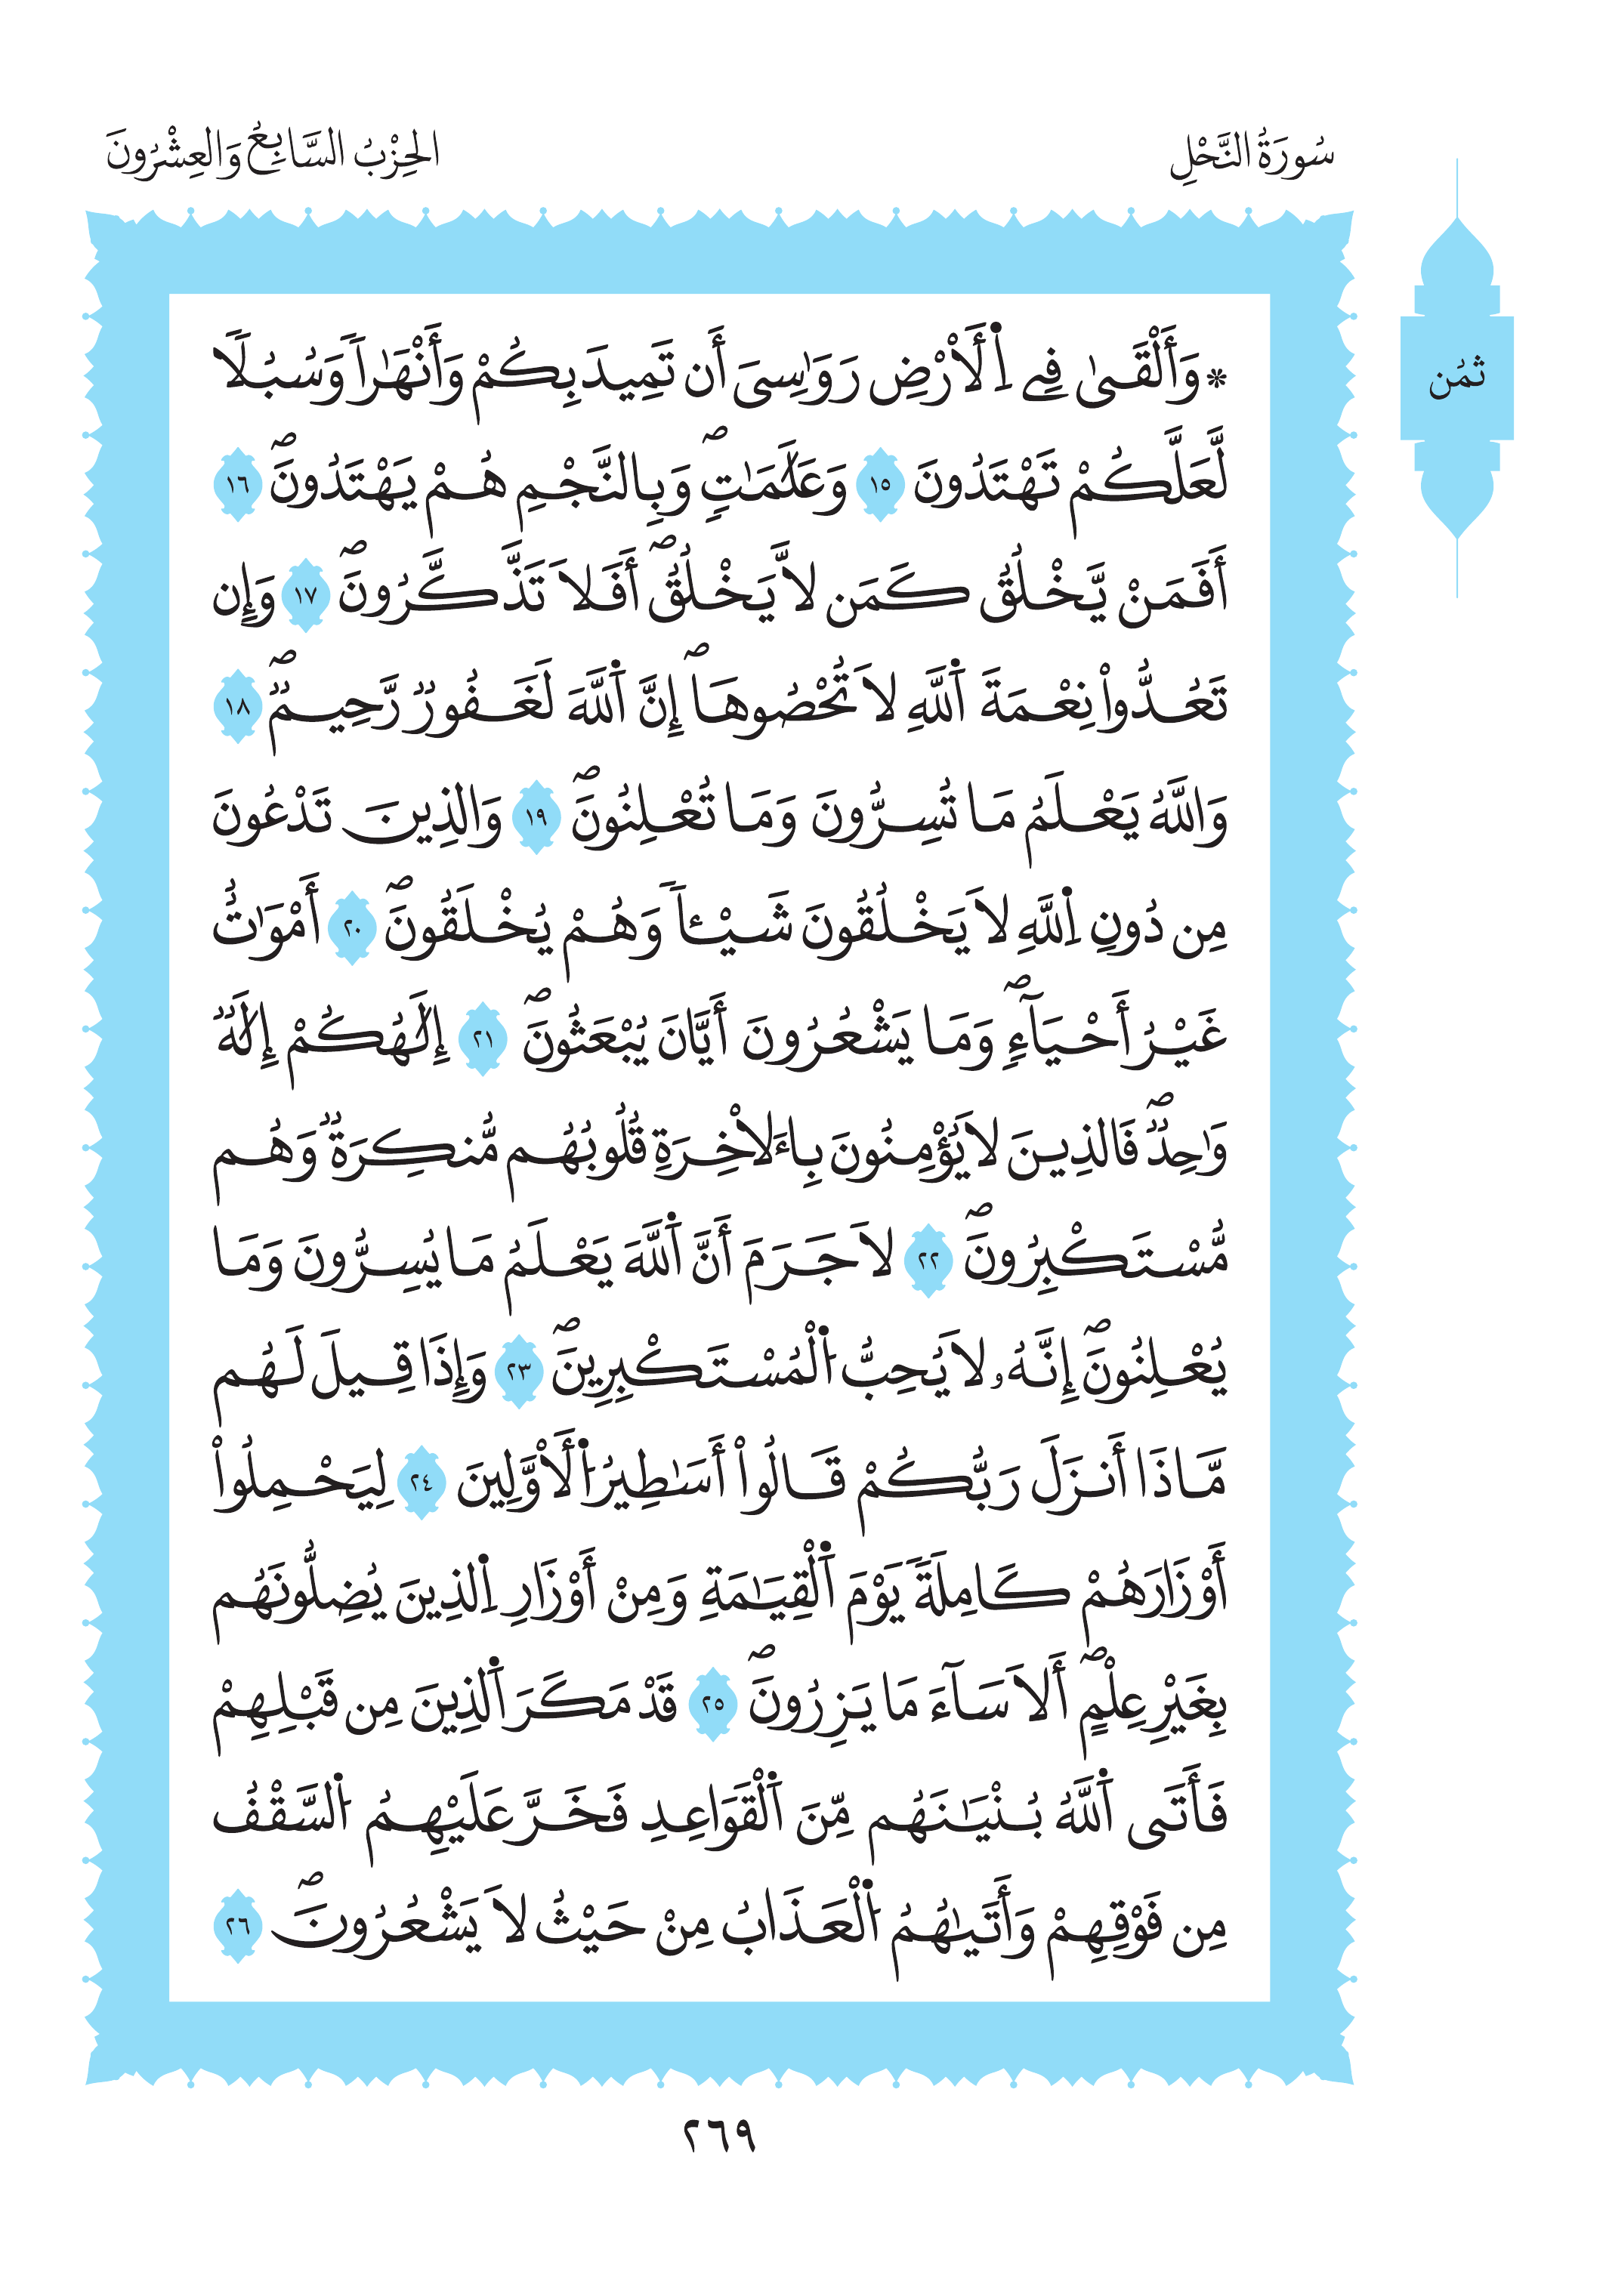 سُورَةُ النَّحْلِ
الحِزْبُ السَّابِعُ وَالعِشْرُونَ
ثمُن
* وَأَلْقَىٰ فِے اِ۬لَارْضِ رَوَٰسِىَ أَن تَمِيدَ بِكُمْ وَأَنْهَٰراٗ وَسُبُلًا
لَّعَلَّكُمْ تَهْتَدُونَ ١٥ وَعَلَٰمَٰتٖۖ وَبِالنَّجْمِ هُمْ يَهْتَدُونَۖ ١٦
أَفَمَنْ يَّخْلُقُ كَمَن لاَّ يَخْلُقُۖ أَفَلاَ تَذَّكَّرُونَۖ ١٧ وَإِن
تَعُدُّواْ نِعْمَةَ اَ۬للَّهِ لاَ تُحْصُوهَاۖ إِنَّ اَ۬للَّهَ لَغَفُورٞ رَّحِيمٞۖ ١٨
وَاللَّهُ يَعْلَمُ مَا تُسِرُّونَ وَمَا تُعْلِنُونَۖ ١٩ وَالذِينَ تَدْعُونَ
مِن دُونِ اِ۬للَّهِ لاَ يَخْلُقُونَ شَيْـٔاٗ وَهُمْ يُخْلَقُونَۖ ٢٠ أَمْوَٰتٌ
غَيْرُ أَحْيَآءٖۖ وَمَا يَشْعُرُونَ أَيَّانَ يُبْعَثُونَۖ ٢١ إِلَٰهُكُمْ إِلَٰهٞ
وَٰحِدٞۖ فَالذِينَ لاَ يُؤْمِنُونَ بِاءَلاْخِرَةِ قُلُوبُهُم مُّنكِرَةٞ وَهُم
مُّسْتَكْبِرُونَۖ ٢٢ لاَ جَرَمَ أَنَّ اَ۬للَّهَ يَعْلَمُ مَا يُسِرُّونَ وَمَا
يُعْلِنُونَۖ إِنَّهُۥ لاَ يُحِبُّ اُ۬لْمُسْتَكْبِرِينَۖ ٢٣ وَإِذَا قِيلَ لَهُم
مَّاذَا أَنزَلَ رَبُّكُمْ قَالُواْ أَسَٰطِيرُ اُ۬لَاوَّلِينَ ٢٤ لِيَحْمِلُواْ
أَوْزَارَهُمْ كَامِلَةٗ يَوْمَ اَ۬لْقِيَٰمَةِ وَمِنْ أَوْزَارِ اِ۬لذِينَ يُضِلُّونَهُم
بِغَيْرِ عِلْمٍۖ أَلاَ سَآءَ مَا يَزِرُونَۖ ٢٥ قَدْ مَكَرَ اَ۬لذِينَ مِن قَبْلِهِمْ
فَأَتَى اَ۬للَّهُ بُنْيَٰنَهُم مِّنَ اَ۬لْقَوَاعِدِ فَخَرَّ عَلَيْهِمُ اُ۬لسَّقْفُ
مِن فَوْقِهِمْ وَأَتَىٰهُمُ اُ۬لْعَذَابُ مِنْ حَيْثُ لاَ يَشْعُرُونَۖ ٢٦
٢٦٩